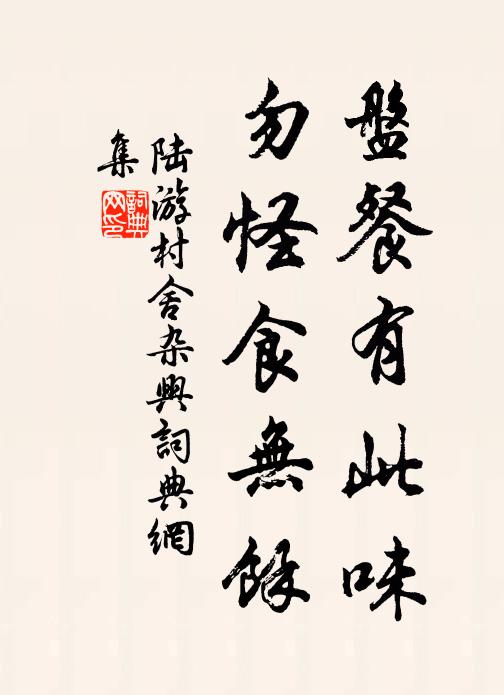 盤餐有此味
勿怪食無餘
陸游村舍杂興詞典網
集
詞典
网印